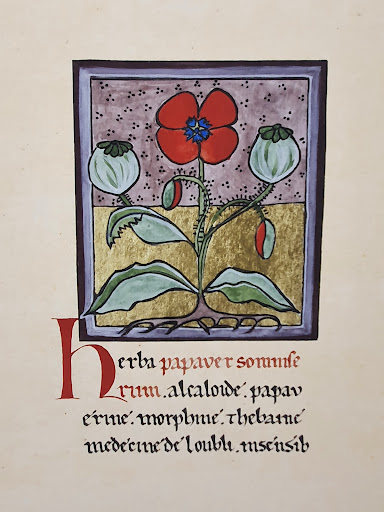 herba papaver somnife
rum. alcaloïde. papav
erine. morphine. thebaïne
medecine de l'oubli. insensib